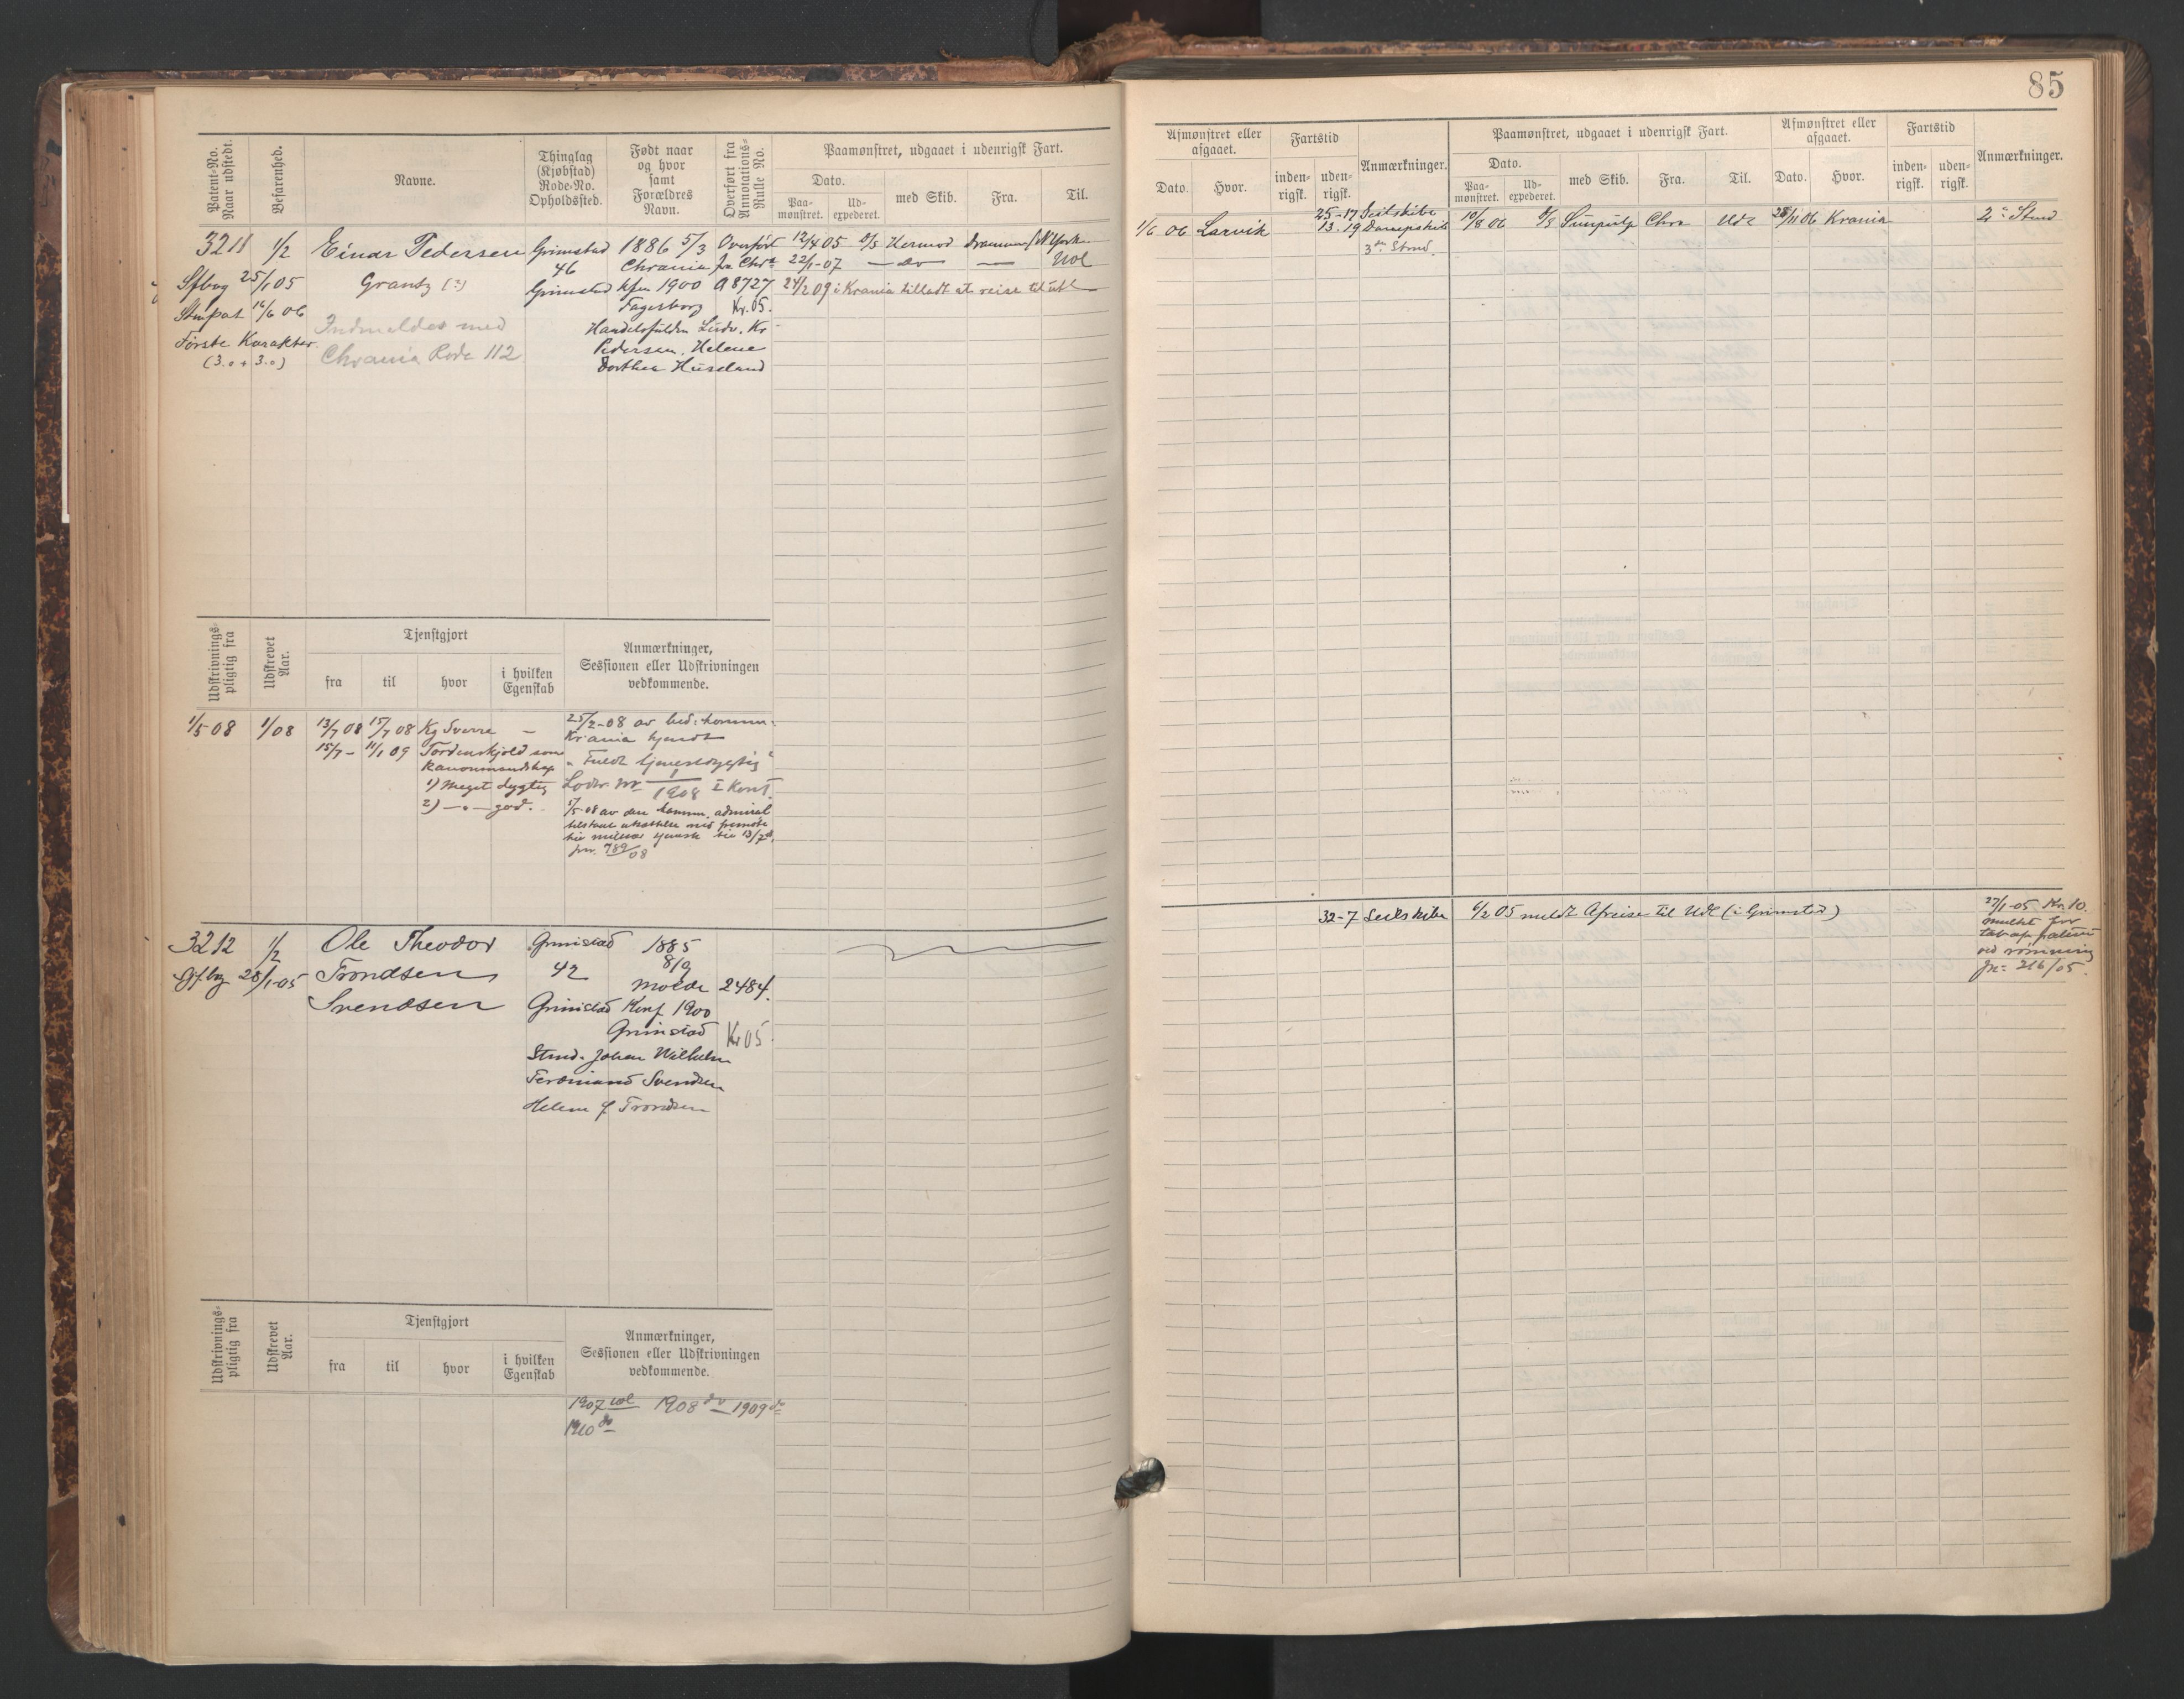 85
Patent-No. Naar udstedt.
Befarenhed.
Navne.
Thinglag (Kjøbstad) Rode-No. Opholdssted.
Født naar og hvor samt Forældres Navn.
Overført fra Annotations-Rulle No.
Paamønstret, udgaaet i udenrigsk Fart.
Dato.
Paa-mønstret.
Ud-expederet.
med Skib.
Fra.
Til.
3211 1/2 Einar Pedersen Grimstad 1886 5/3 Overført 12/4 05 Hermod Drammen N York
46 Chrania fra Chra 22/1-07 — do — Udl
Sfbog 25/1 05 Grantz (?) Grimstad kfm 1900 A8727 24/2 09 i Krania tilladt at reise til utl
Stmpat 16/6 06 Fagerborg Kr. 05.
Indmeldes med Handelsfuldm Ludv. Kr
Første Karakter Chrania Rode 112 Pedersen, Helene
(3.0 + 3.0) Dorthea Huseland
Udskrivnings-pligtig fra
Udskrevet Aar.
Tjenstgjort
fra
til
hvor
i hvilken Egenskab
Anmærkninger, Sessionen eller Udskrivningen vedkommende.
1/5 08 1/08 13/7 08 15/7 08 Kg Sverre — 25/2-08 av
15/7 - 11/1 09 Tordenskjold som Krania kjendt
Kanonmandskap
1) Meget dygtig Lodtr. Nr 1/1908 I Kont.
2) — " — god. 1/5-08 av den komm. admiral
13/7 08
jnr. 789/08
3212 1/2 Ole Theodor Grimstad 1885
8/9
Sfbog 28/1-05 Trondsen 42 Molde 2484.
Svendsen Grimstad Konf 1900
Grimstad Kr 05.
Stmd. Johan Wilhelm
Ferdinand Svendsen
Helene f Trondsen
Udskrivnings-pligtig fra
Udskrevet Aar.
Tjenstgjort
fra
til
hvor
i hvilken Egenskab
Anmærkninger, Sessionen eller Udskrivningen vedkommende.
1907 udl 1908 do 1909 do
1910 do
Afmønstret eller afgaaet.
Dato.
Hvor.
Fartstid
inden-rigsk.
uden-rigsk.
Anmærkninger.
Paamønstret, udgaaet i udenrigsk Fart.
Dato.
Paa-mønstret.
Ud-expederet.
med Skib.
Fra.
Til.
Afmønstret eller afgaaet.
Dato.
Hvor.
Fartstid
inden-rigsk.
uden-rigsk.
Anmærkninger.
1/6 06 Larvik 25-17 Seilskibe 10/8 06 Chra Udl 28/11 06 Krania 2 Stmd
13-19 Dampskib
3die Stmd.
32-7 Seilskibe 6/2 05 meldt Afreise til Udl (i Grimstad) 27/1-05 Kr. 10.
mulkt for
tab af patent
ved rømning
jn: 216/05.